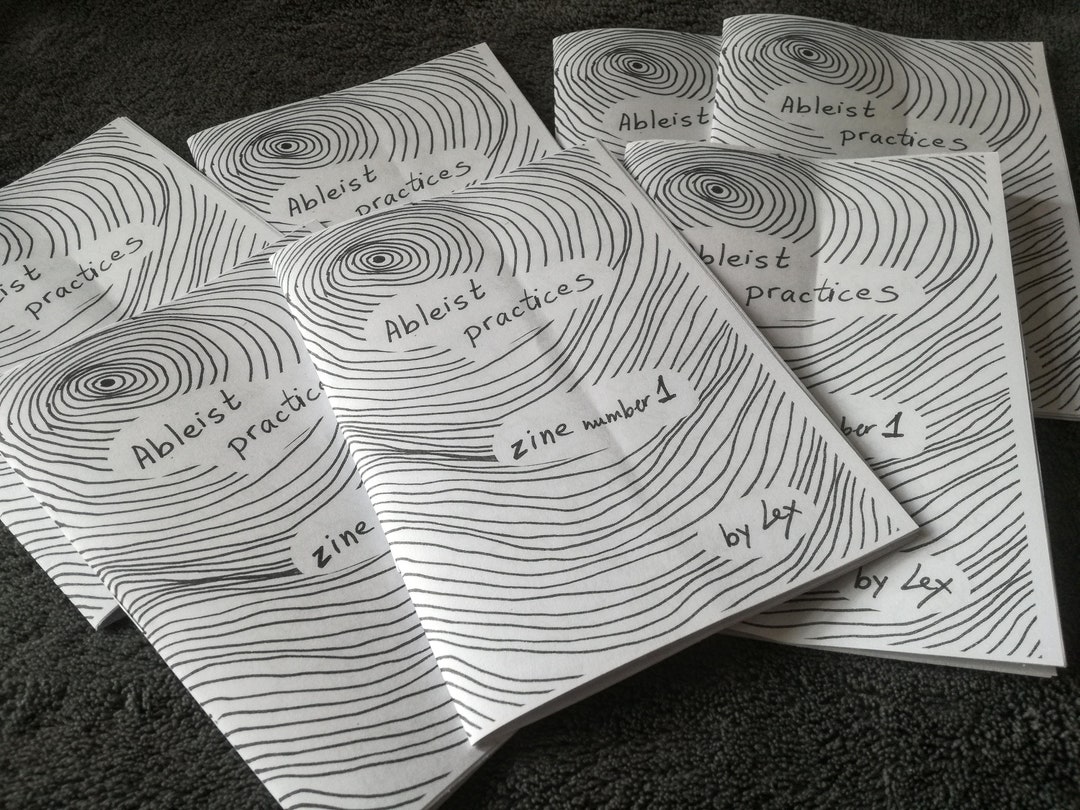 Ableist
practices
Ableist
practices
Ableist
Ableist
practices
ist
practices
bleist
practices
ber 1
by Lex
Ableist
practic
zine
Ableist
practices
zine number 1
by Lex